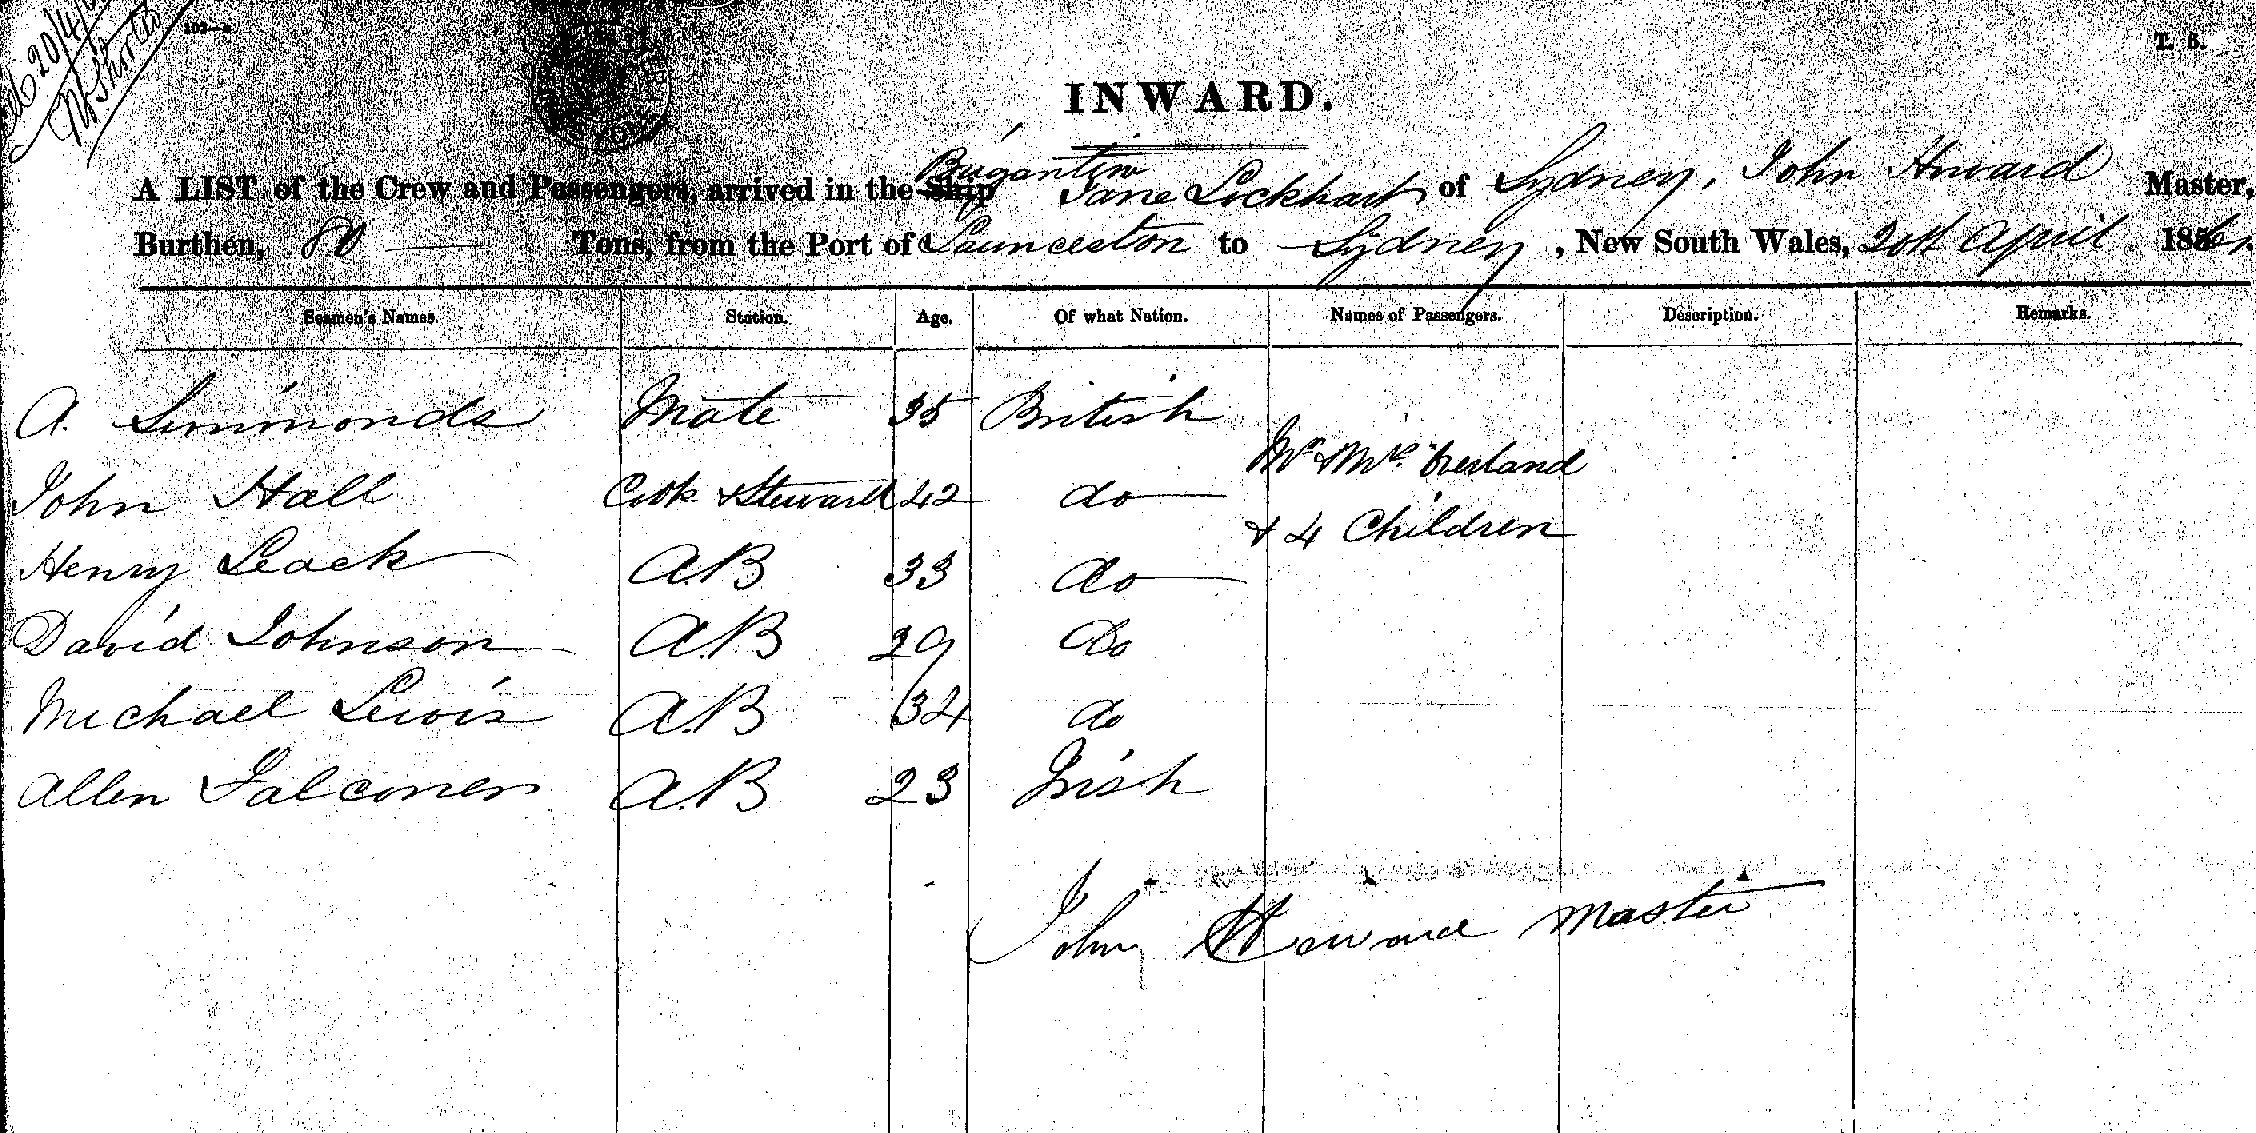 20/4/
103—a
T. 5.
INWARD.
A LIST of the Crew and Passengers, arrived in the Ship Brigantine Jane Lockhart of Sydney, John Howard Master,
Burthen, 80 — Tons, from the Port of Launceston to Sydney, New South Wales, 20th April 186
Seamen's Names. Station. Age. Of what Nation. Names of Passengers. Description. Remarks.
A. Simmonds Mate 35 British
Mr & Mrs
John Hall Cook & Steward 42 do
& 4 Children
Henry Leack A.B 33 do
David Johnson A.B 29 Do
Michael Lewis A.B 34 do
Allen Falconer A.B 23 Irish
John Howard Master